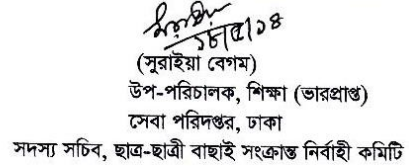 ১৮/৫/১৪
(সুরাইয়া বেগম)
উপ-পরিচালক, শিক্ষা (ভারপ্রাপ্ত)
সেবা পরিদপ্তর, ঢাকা
সদস্য সচিব, ছাত্র-ছাত্রী বাছাই সংক্রান্ত নির্বাহী কমিটি